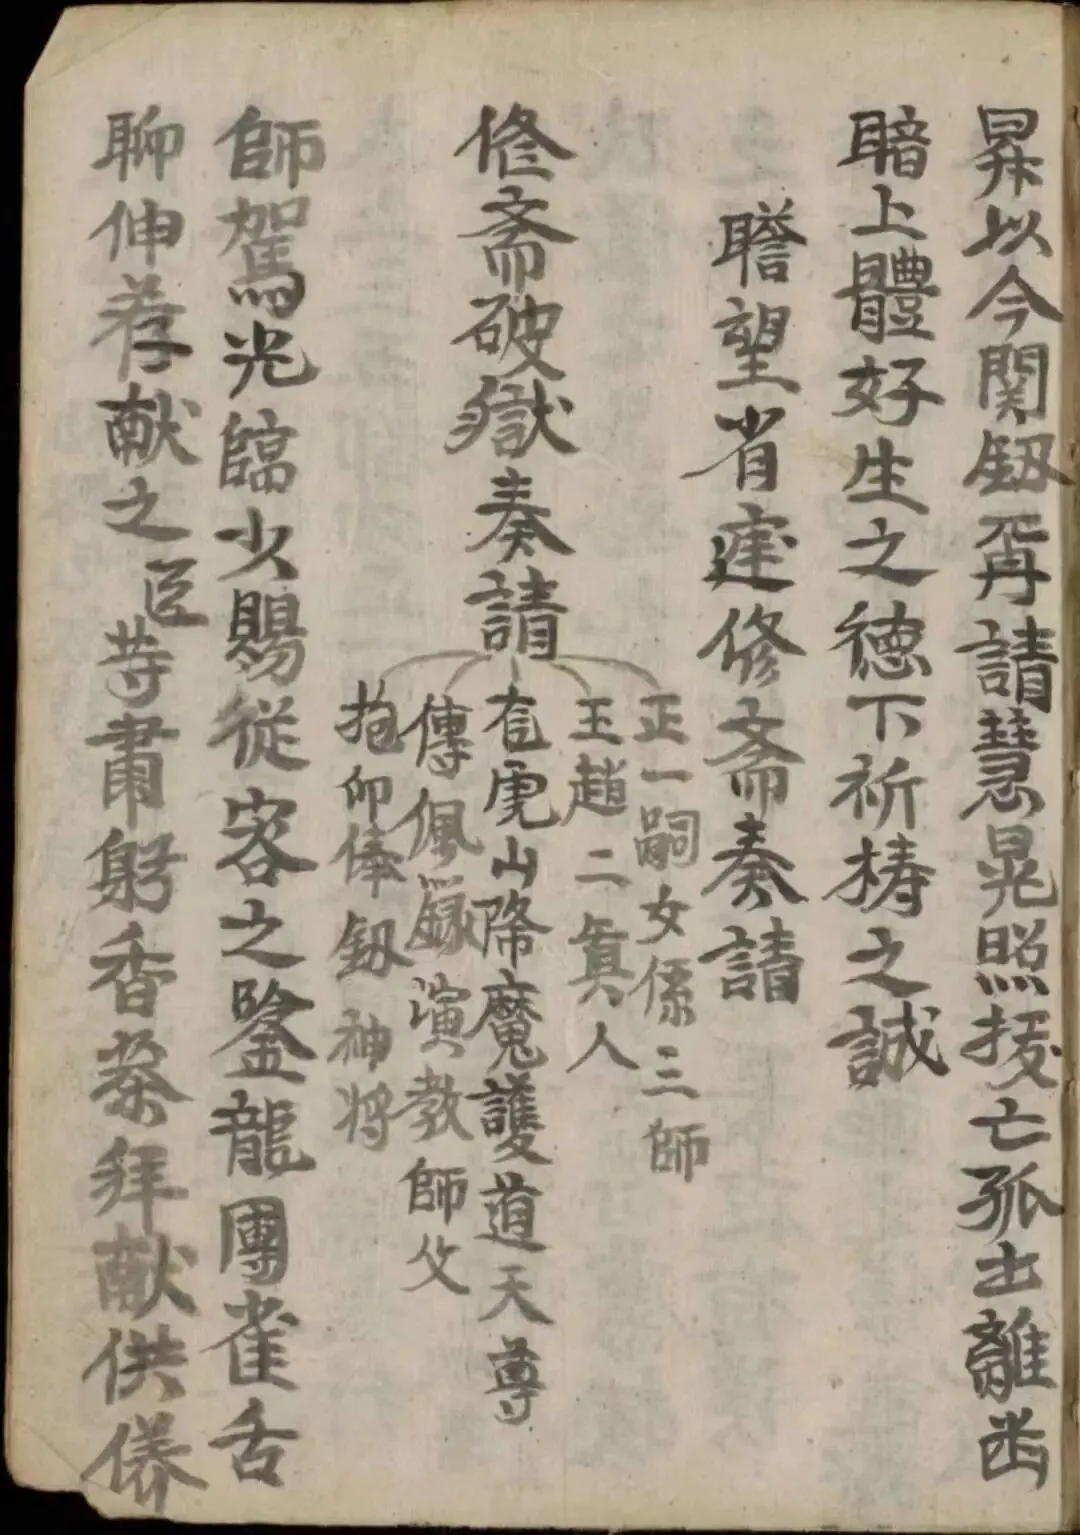 昇以今関釰再請慧晃照拔亡孤出離幽
暗上體好生之德下祈梼之誠
瞻望省建修斋奏請
修斋破獄奏請
正一嗣女係三師
王趙二真人
玄虎山降魔護道天尊
傳佩籙演教師父
抱印俸釰神将
師駕光臨少賜從容之龍團雀舌
聊伸荐献之臣等肅躬香茶拜献供養